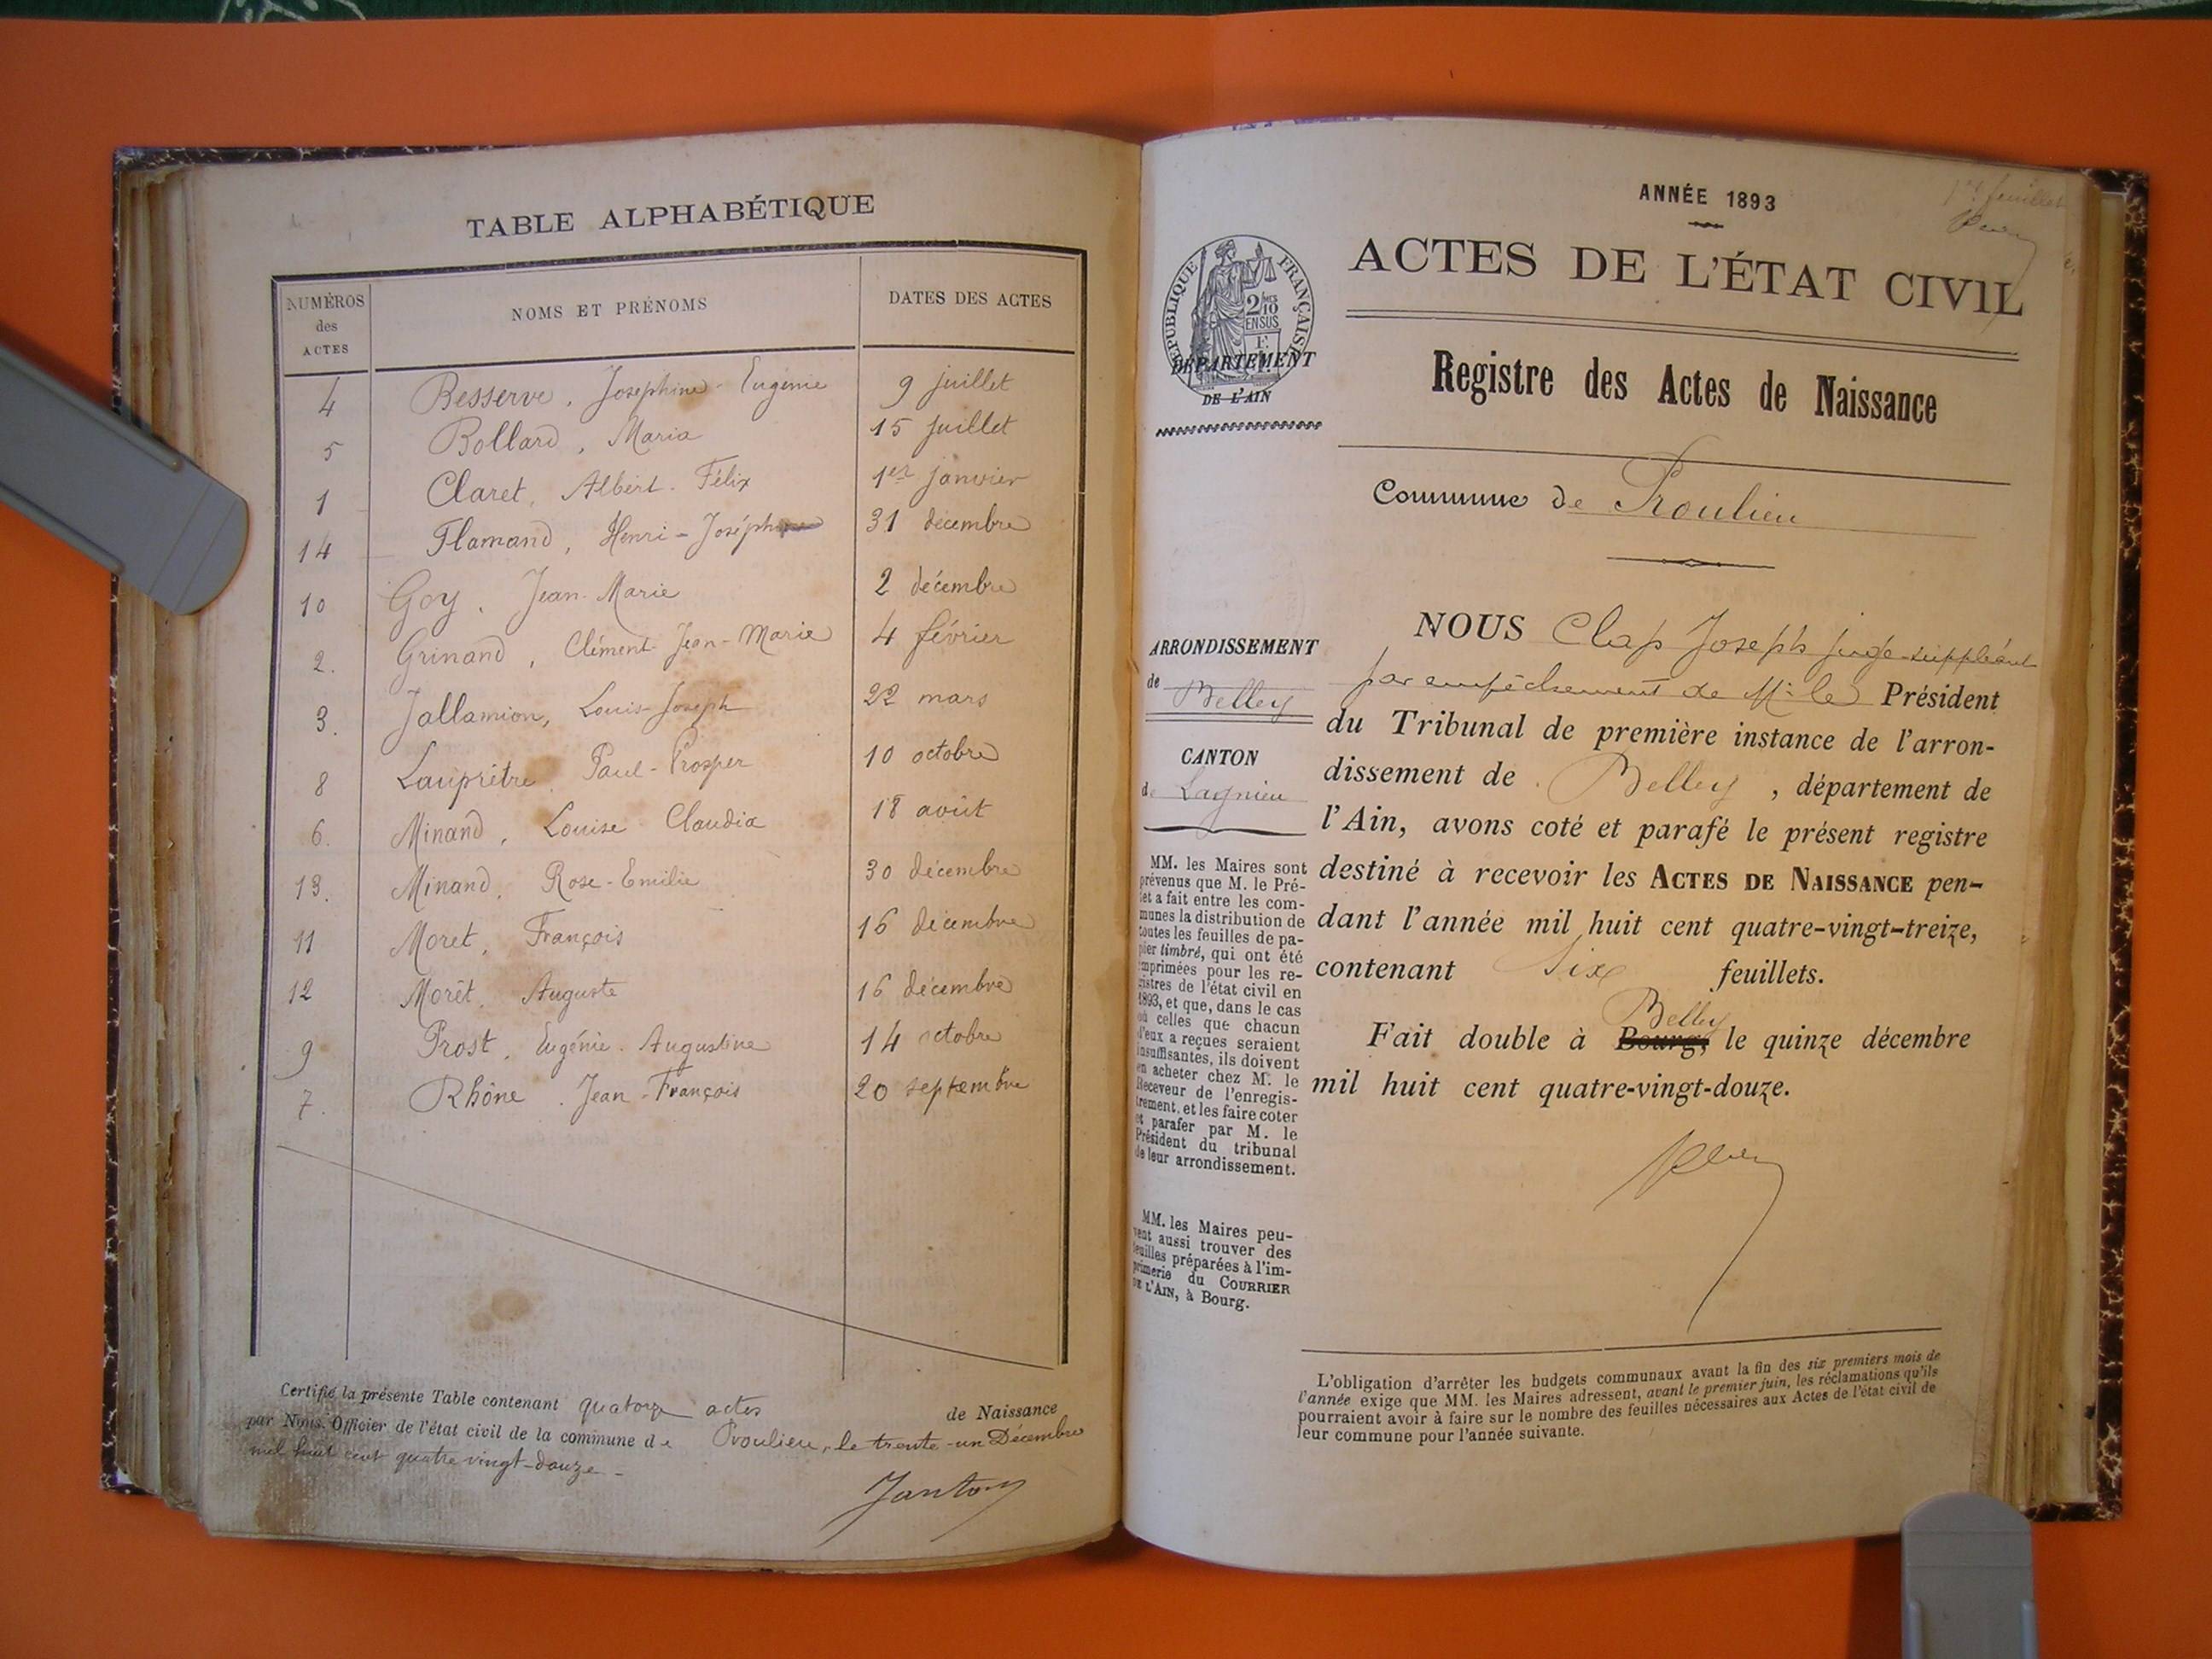 TABLE ALPHABÉTIQUE
NUMÉROS
des
ACTES
NOMS ET PRÉNOMS
DATES DES ACTES
4 Besserve, Joséphine-Eugénie 9 juillet
5 Bollard, Maria 15 juillet
1 Claret, Albert. Félix 1er janvier
14 Flamand, Henri-Joseph 31 décembre
10 Goy, Jean-Marie 2 décembre
2. Grinand, Clément-Jean-Marie 4 février
3. Jallamion, Louis-Joseph 22 mars
8 Lauprêtre, Paul-Prosper 10 octobre
6. Minand, Louise Claudia 18 août
13. Minand, Rose-Emilie 30 décembre
11 Moret, François 16 décembre
12 Morêt, Auguste 16 décembre
9 Prost, Eugénie. Augustine 14 octobre
7. Rhône. Jean-François 20 septembre
Certifié la présente Table contenant quatorze actes de Naissance
par Nous, Officier de l'état civil de la commune de Proulieu, le trente-un Décembre
mil huit cent quatre vingt-douze-
Janton
1er feuillet
ANNÉE 1893
ACTES DE L'ÉTAT CIVIL
RÉPUBLIQUE FRANÇAISE
2/10
EN SUS
DÉPARTEMENT
DE L'AIN
Registre des Actes de Naissance
Commune de Proulieu
ARRONDISSEMENT
de Belley
CANTON
de Lagnieu
MM. les Maires sont
prévenus que M. le Pré-
fet a fait entre les com-
munes la distribution de
toutes les feuilles de pa-
pier timbré, qui ont été
imprimées pour les re-
gistres de l'état civil en
1893, et que, dans le cas
où celles que chacun
d'eux a reçues seraient
insuffisantes, ils doivent
en acheter chez M. le
Receveur de l'enregis-
trement, et les faire coter
et parafer par M. le
Président du tribunal
de leur arrondissement.
MM. les Maires peu-
vent aussi trouver des
feuilles préparées à l'im-
primerie du COURRIER
DE L'AIN, à Bourg.
NOUS Clap Joseph juge-suppléant
par empêchement de Mr le Président
du Tribunal de première instance de l'arron-
dissement de Belley, département de
l'Ain, avons coté et parafé le présent registre
destiné à recevoir les ACTES DE NAISSANCE pen-
dant l'année mil huit cent quatre-vingt-treize,
contenant Six feuillets.
Belley
Fait double à Bourg, le quinze décembre
mil huit cent quatre-vingt-douze.
L'obligation d'arrêter les budgets communaux avant la fin des six premiers mois de
l'année exige que MM. les Maires adressent, avant le premier juin, les réclamations qu'ils
pourraient avoir à faire sur le nombre des feuilles nécessaires aux Actes de l'état civil de
leur commune pour l'année suivante.